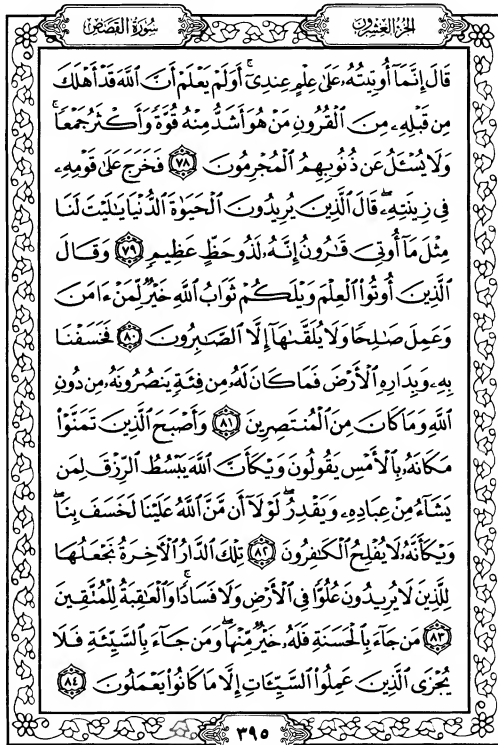 الجزء العشرون
سورة القصص
قَالَ إِنَّمَآ أُوتِيتُهُۥ عَلَىٰ عِلْمٍ عِندِىٓ ۚ أَوَلَمْ يَعْلَمْ أَنَّ ٱللَّهَ قَدْ أَهْلَكَ
مِن قَبْلِهِۦ مِنَ ٱلْقُرُونِ مَنْ هُوَ أَشَدُّ مِنْهُ قُوَّةً وَأَكْثَرُ جَمْعًا ۚ
وَلَا يُسْـَٔلُ عَن ذُنُوبِهِمُ ٱلْمُجْرِمُونَ ﴿٧٨﴾ فَخَرَجَ عَلَىٰ قَوْمِهِۦ
فِى زِينَتِهِۦ ۖ قَالَ ٱلَّذِينَ يُرِيدُونَ ٱلْحَيَوٰةَ ٱلدُّنْيَا يَـٰلَيْتَ لَنَا
مِثْلَ مَآ أُوتِىَ قَـٰرُونُ إِنَّهُۥ لَذُو حَظٍّ عَظِيمٍ ﴿٧٩﴾ وَقَالَ
ٱلَّذِينَ أُوتُوا۟ ٱلْعِلْمَ وَيْلَكُمْ ثَوَابُ ٱللَّهِ خَيْرٌ لِّمَنْ ءَامَنَ
وَعَمِلَ صَـٰلِحًا وَلَا يُلَقَّىٰهَآ إِلَّا ٱلصَّـٰبِرُونَ ﴿٨٠﴾ فَخَسَفْنَا
بِهِۦ وَبِدَارِهِ ٱلْأَرْضَ فَمَا كَانَ لَهُۥ مِن فِئَةٍ يَنصُرُونَهُۥ مِن دُونِ
ٱللَّهِ وَمَا كَانَ مِنَ ٱلْمُنتَصِرِينَ ﴿٨١﴾ وَأَصْبَحَ ٱلَّذِينَ تَمَنَّوْا۟
مَكَانَهُۥ بِٱلْأَمْسِ يَقُولُونَ وَيْكَأَنَّ ٱللَّهَ يَبْسُطُ ٱلرِّزْقَ لِمَن
يَشَآءُ مِنْ عِبَادِهِۦ وَيَقْدِرُ ۖ لَوْلَآ أَن مَّنَّ ٱللَّهُ عَلَيْنَا لَخَسَفَ بِنَا ۖ
وَيْكَأَنَّهُۥ لَا يُفْلِحُ ٱلْكَـٰفِرُونَ ﴿٨٢﴾ تِلْكَ ٱلدَّارُ ٱلْـَٔاخِرَةُ نَجْعَلُهَا
لِلَّذِينَ لَا يُرِيدُونَ عُلُوًّا فِى ٱلْأَرْضِ وَلَا فَسَادًا ۚ وَٱلْعَـٰقِبَةُ لِلْمُتَّقِينَ
﴿٨٣﴾ مَن جَآءَ بِٱلْحَسَنَةِ فَلَهُۥ خَيْرٌ مِّنْهَا ۖ وَمَن جَآءَ بِٱلسَّيِّئَةِ فَلَا
يُجْزَى ٱلَّذِينَ عَمِلُوا۟ ٱلسَّيِّـَٔاتِ إِلَّا مَا كَانُوا۟ يَعْمَلُونَ ﴿٨٤﴾
٣٩٥